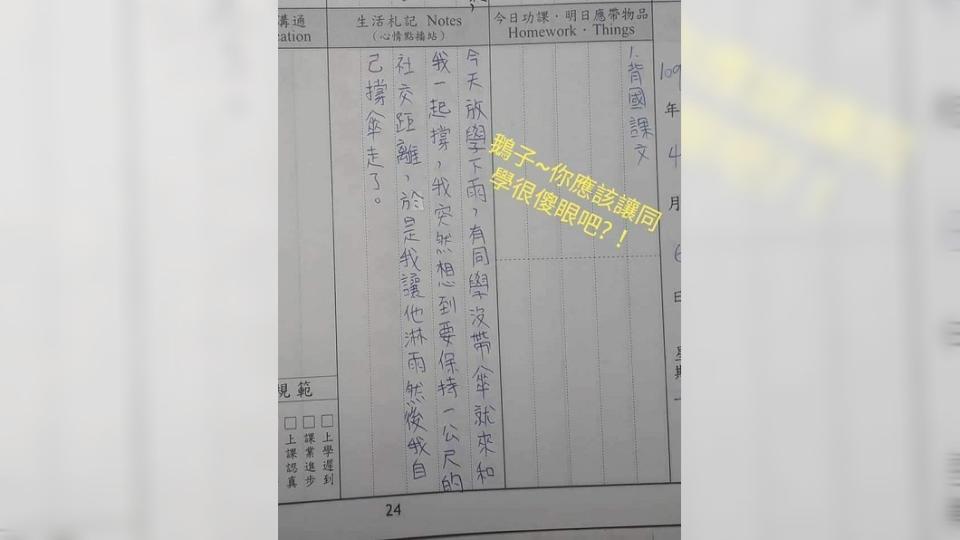 溝通
cation
生活札記 Notes
（心情點播站）
今日功課．明日應帶物品
Homework．Things
1.背國課文
109
年
4
月
6
日
星
期
一
今天放學下雨，有同學沒帶傘就來和
我一起撐，我突然想到要保持一公尺的
社交距離，於是我讓他淋雨然後我自
己撐傘走了。
鵝子~你應該讓同
學很傻眼吧?！
規範
□上學遲到
□課業進步
□上課認真
24